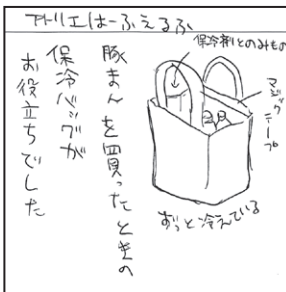 アトリエはーふえるふ
保冷剤とのみもの
マジックテープ
ずっと冷えている
豚まんを買ったときの
保冷バッグが
お役立ちでした